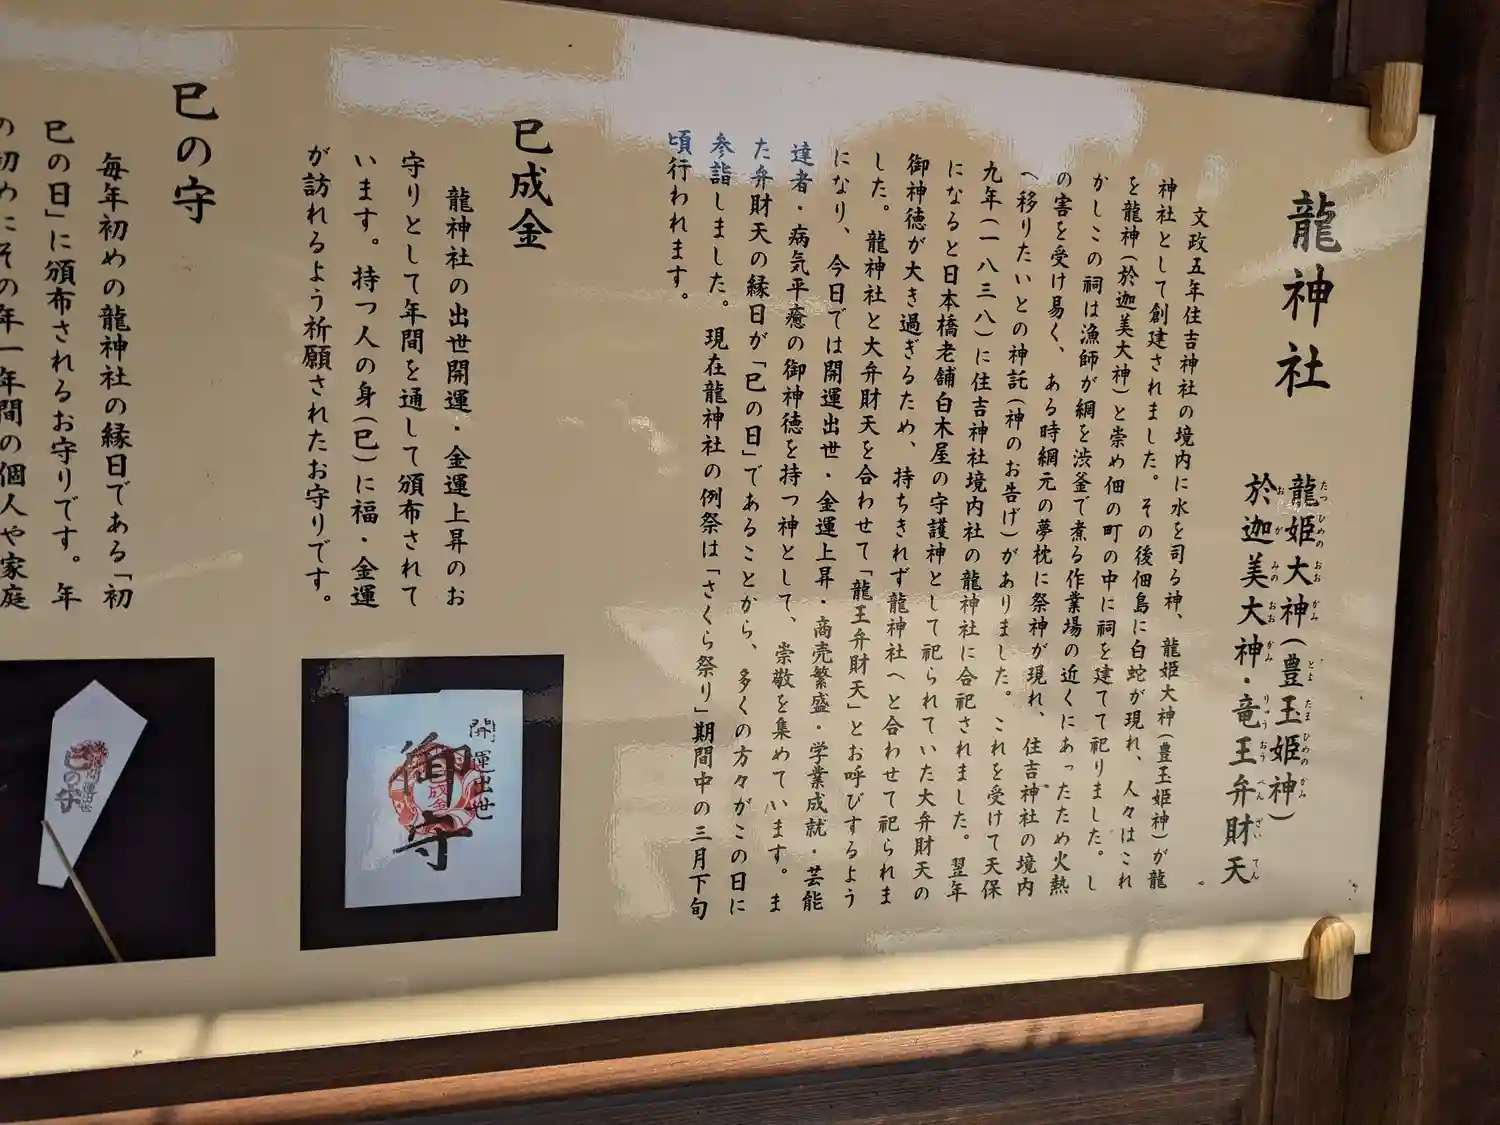 龍神社
龍姫大神(豊玉姫神)
たつひめのおおがみ とよたまひめのかみ
於迦美大神・竜王弁財天
おがみのおおがみ りゅうおうべんざいてん
文政五年住吉神社の境内に水を司る神、龍姫大神(豊玉姫神)が龍
神社として創建されました。その後佃島に白蛇が現れ、人々はこれ
を龍神(於迦美大神)と崇め佃の町の中に祠を建てて祀りました。し
かしこの祠は漁師が網を渋釜で煮る作業場の近くにあったため火熱
の害を受け易く、ある時網元の夢枕に祭神が現れ、住吉神社の境内
へ移りたいとの神託(神のお告げ)がありました。これを受けて天保
九年(一八三八)に住吉神社境内社の龍神社に合祀されました。翌年
になると日本橋老舗白木屋の守護神として祀られていた大弁財天の
御神徳が大き過ぎるため、持ちきれず龍神社へと合わせて祀られま
した。龍神社と大弁財天を合わせて「龍王弁財天」とお呼びするよう
になり、今日では開運出世・金運上昇・商売繁盛・学業成就・芸能
達者・病気平癒の御神徳を持つ神として、崇敬を集めています。ま
た弁財天の縁日が「巳の日」であることから、多くの方々がこの日に
参詣しました。現在龍神社の例祭は「さくら祭り」期間中の三月下旬
頃行われます。
巳成金
龍神社の出世開運・金運上昇のお
守りとして年間を通して頒布されて
います。持つ人の身(巳)に福・金運
が訪れるよう祈願されたお守りです。
開運出世
御守
成金
巳の守
毎年初めの龍神社の縁日である「初
巳の日」に頒布されるお守りです。年
の初めにその年一年間の個人や家庭
開運出世
巳の守